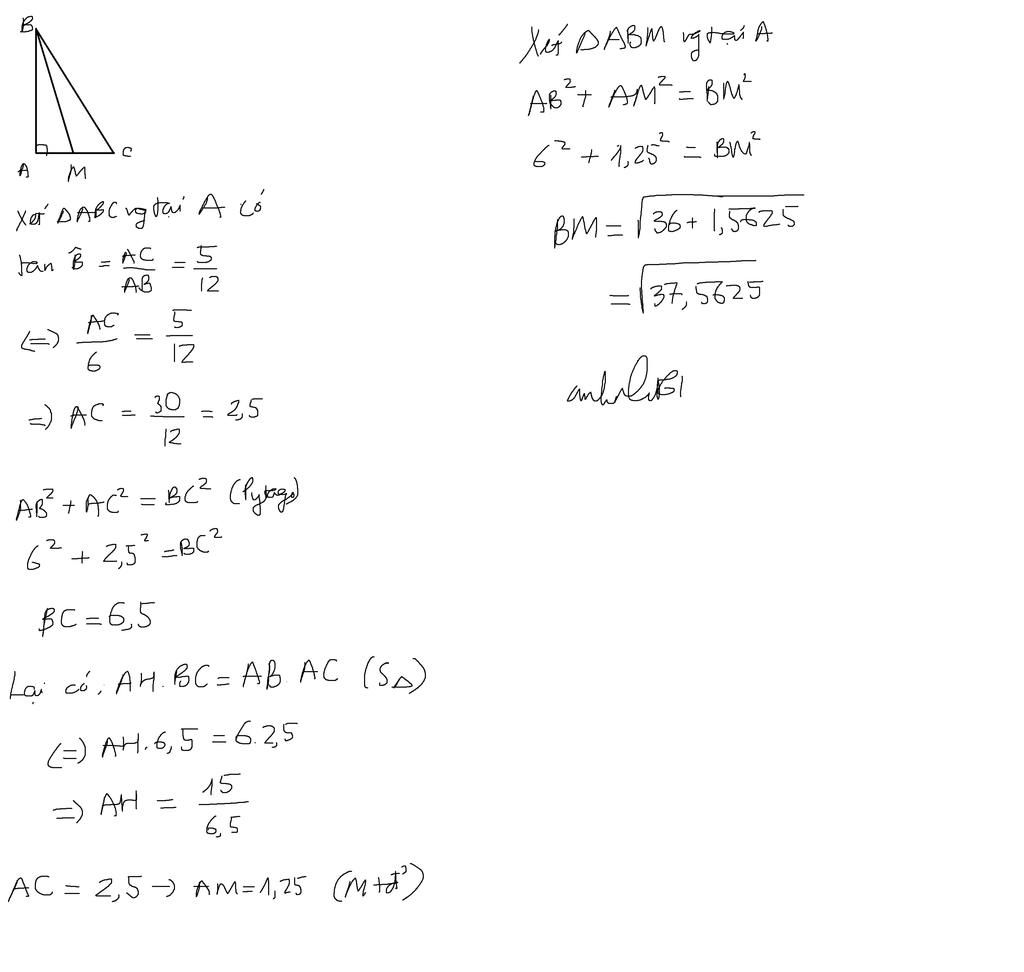 B
A M C
Xét ΔABC vg tại A có
tan B̂ = AC/AB = 5/12
<=> AC/6 = 5/12
=> AC = 30/12 = 2,5
AB² + AC² = BC² (Pytago)
6² + 2,5² = BC²
BC = 6,5
Lại có, AH.BC = AB.AC (S△)
<=> AH.6,5 = 6.2,5
=> AH = 15/6,5
AC = 2,5 → AM = 1,25 (M tđ)
Xét ΔABM vg tại A
AB² + AM² = BM²
6² + 1,25² = BM²
BM = √36 + 1,5625
= √37,5625